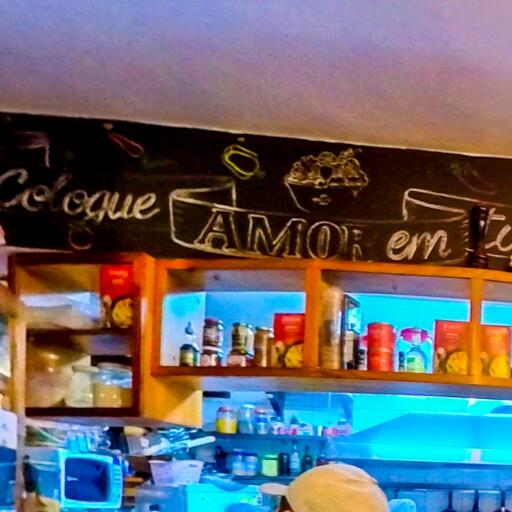 Coloque AMOR em